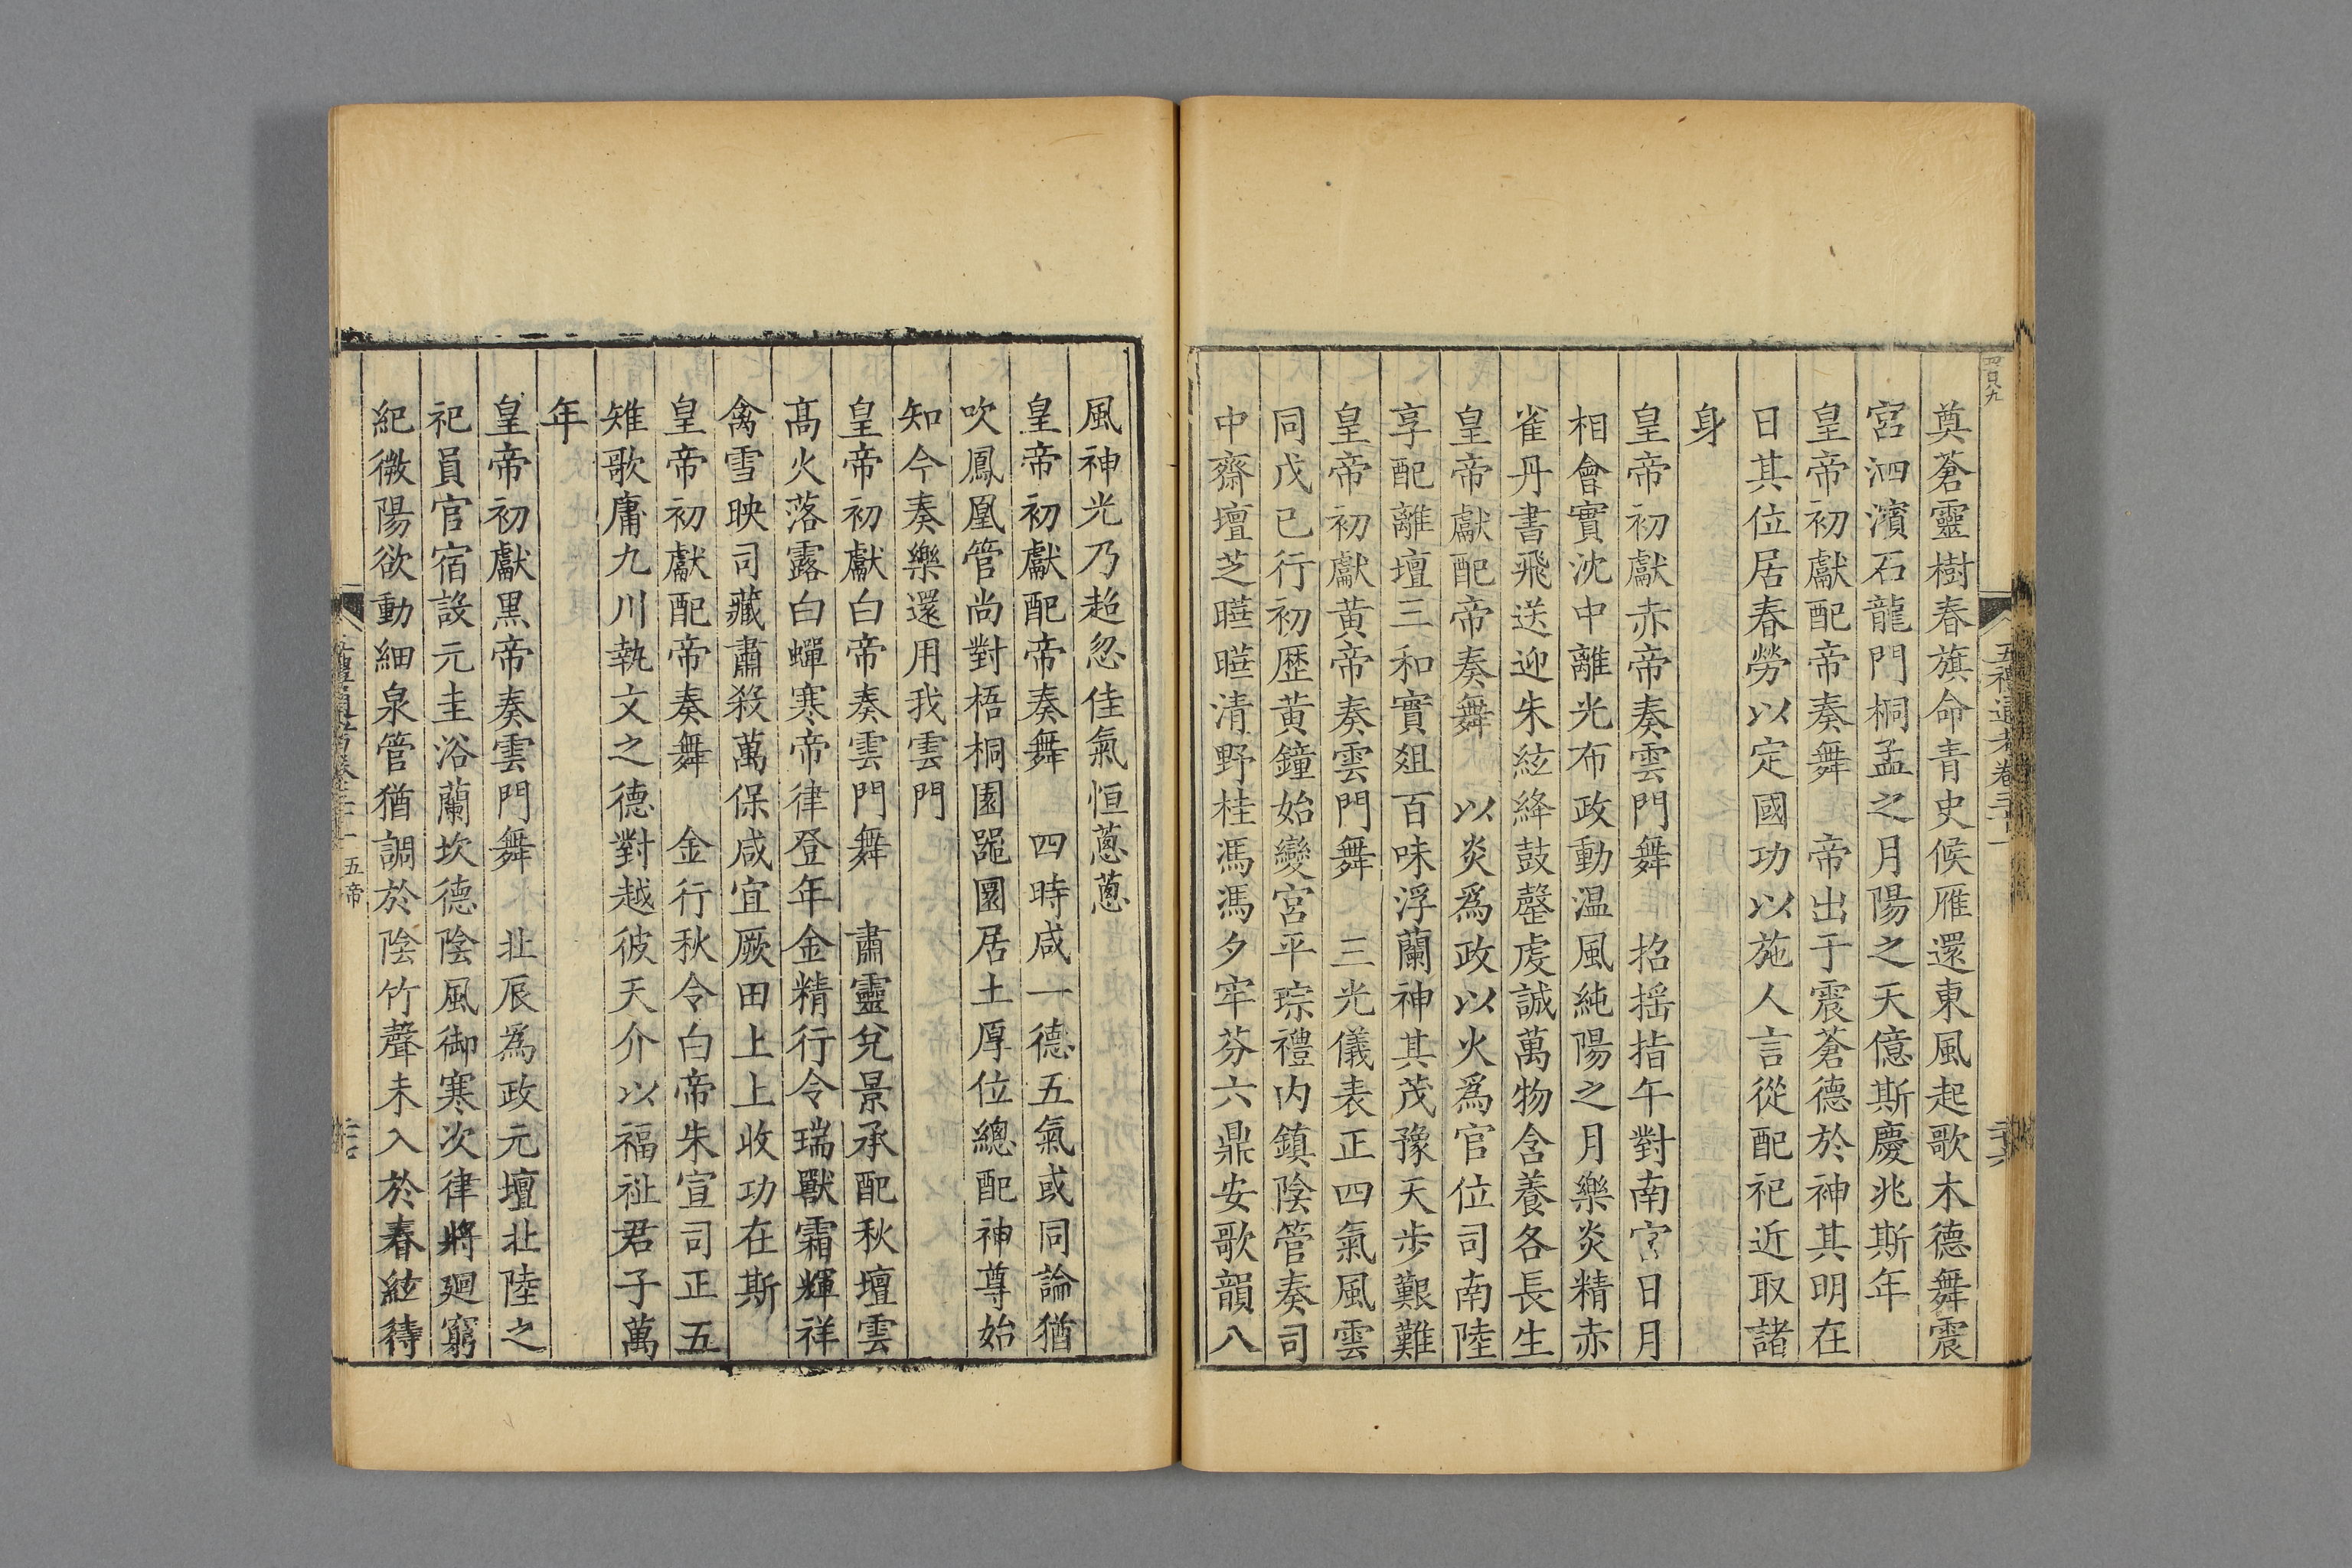 奠蒼靈樹春旗命青史候雁還東風起歌木德舞震
宮泗濱石龍門桐孟之月陽之天億斯慶兆斯年
皇帝初獻配帝奏舞　帝出于震蒼德於神其明在
日其位居春勞以定國功以施人言從配祀近取諸
身
皇帝初獻赤帝奏雲門舞　招揺指午對南宮日月
相會實沈中離光布政動温風純陽之月樂炎精赤
雀丹書飛送迎朱絃絳鼓罄虔誠萬物含養各長生
皇帝獻配帝奏舞　以炎爲政以火爲官位司南陸
享配離壇三和實俎百味浮蘭神其茂豫天歩艱難
皇帝初獻黄帝奏雲門舞　三光儀表正四氣風雲
同戊己行初歴黃鐘始變宮平琮禮内鎮陰管奏司
中齋壇芝曀曀清野桂馮馮夕牢芬六鼎安歌韻八
風神光乃超忽佳氣恒蔥蔥
皇帝初獻配帝奏舞　四時咸一德五氣或同論猶
吹鳳凰管尚對梧桐園噐圜居土厚位總配神尊始
知今奏樂還用我雲門
皇帝初獻白帝奏雲門舞　肅靈兌景承配秋壇雲
髙火落露白蟬寒帝律登年金精行令瑞獸霜輝祥
禽雪映司藏肅殺萬保咸宜厥田上上收功在斯
皇帝初獻配帝奏舞　金行秋令白帝朱宣司正五
雉歌庸九川執文之德對越彼天介以福祉君子萬
年
皇帝初獻黒帝奏雲門舞　北辰爲政元壇北陸之
祀員官宿設元圭浴蘭坎德陰風御寒次律將廻窮
紀微陽欲動細泉管猶調於陰竹聲未入於春絃待
五禮通考卷三十一
二十六
五帝